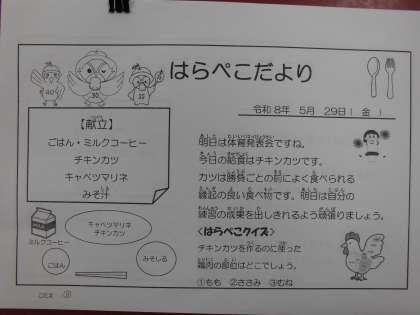 はらぺこだより
令和8年 5月 29日(金)
【献立】
ごはん・ミルクコーヒー
チキンカツ
キャベツマリネ
みそ汁
明日は体育発表会ですね。
今日の給食はチキンカツです。
カツは勝負ごとの前によく食べられる
縁起の良い食べ物です。明日は自分の
練習の成果を出しきれるよう頑張りましょう。
<はらぺこクイズ>
チキンカツを作るのに使った
鶏肉の部位はどこでしょう。
①もも ②ささみ ③むね
キャベツマリネ
チキンカツ
ミルクコーヒー
ごはん
みそしる